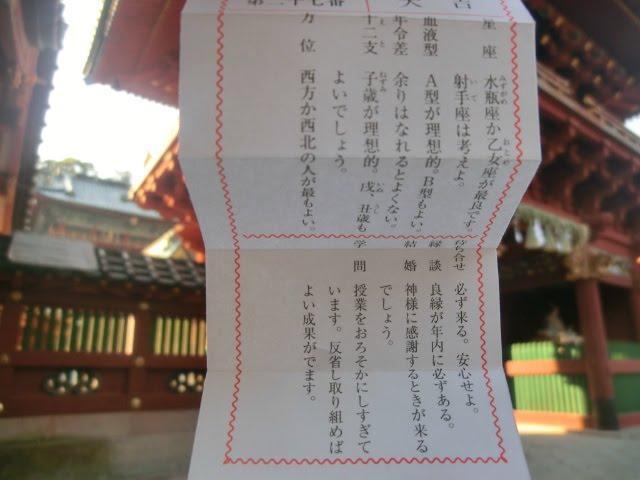 星座 水瓶座か乙女座が最良です。
射手座は考えよ。
血液型 A型が理想的。B型もよい、
年令差 余りはなれるとよくない。
十二支 子歳が理想的。戌、丑歳も
よいでしょう。
方位 西方か西北の人が最もよい。
待合せ 必ず来る。安心せよ。
縁談 良縁が年内に必ずある。
結婚 神様に感謝するときが来る
でしょう。
学問 授業をおろそかにしすぎて
います。反省し取り組めば
よい成果がでます。